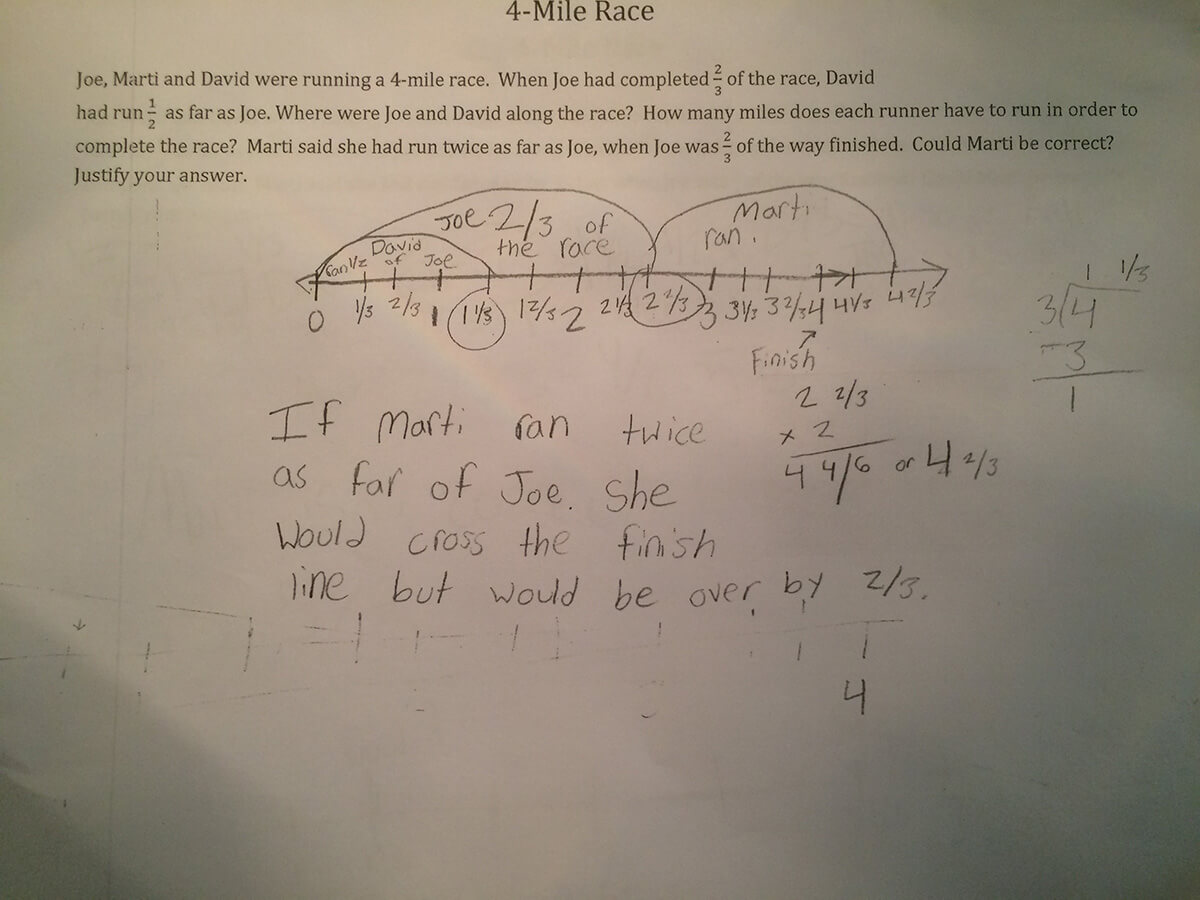 4-Mile Race
Joe, Marti and David were running a 4-mile race. When Joe had completed 2/3 of the race, David
had run 1/2 as far as Joe. Where were Joe and David along the race? How many miles does each runner have to run in order to
complete the race? Marti said she had run twice as far as Joe, when Joe was 2/3 of the way finished. Could Marti be correct?
Justify your answer.
Joe 2/3 of
the race
Marti
ran.
David
ran 1/2 of Joe
0 1/3 2/3 1 1 1/3 1 2/3 2 2 1/3 2 2/3 3 3 1/3 3 2/3 4 4 1/3 4 2/3
Finish
1 1/3
3/4
-3
1
2 2/3
x 2
4 4/6 or 4 2/3
If Marti ran twice
as far of Joe. She
Would cross the finish
line but would be over by 2/3.
4